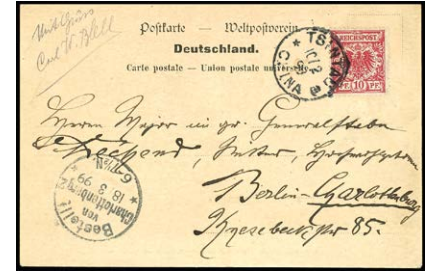 Mit Gruss
Carl W. Bell
Postkarte — Weltpostverein
Deutschland.
Carte postale — Union postale universelle
TSINTAU
10/2
99
CHINA
REICHSPOST
10 PF.
Herrn Major im gr. Generalstabe
Ritter,
Berlin-Charlottenburg
Knesebeckstr 85.
Bestellt
von
Charlottenburg 2
18.3.99